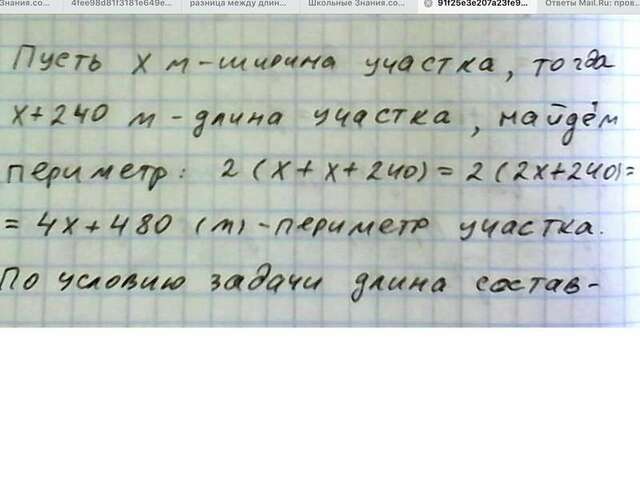 Знания.co...
4fee98d81f3181e649e...
разница между длин...
Школьные Знания.co...
91f25e3e207a23fe9...
Ответы Mail.Ru: пров...
Пусть х м - ширина участка, тогда
х+240 м - длина участка, найдём
периметр: 2(х+х+240)=2(2х+240)=
= 4х+480 (м) - периметр участка.
По условию задачи длина состав-